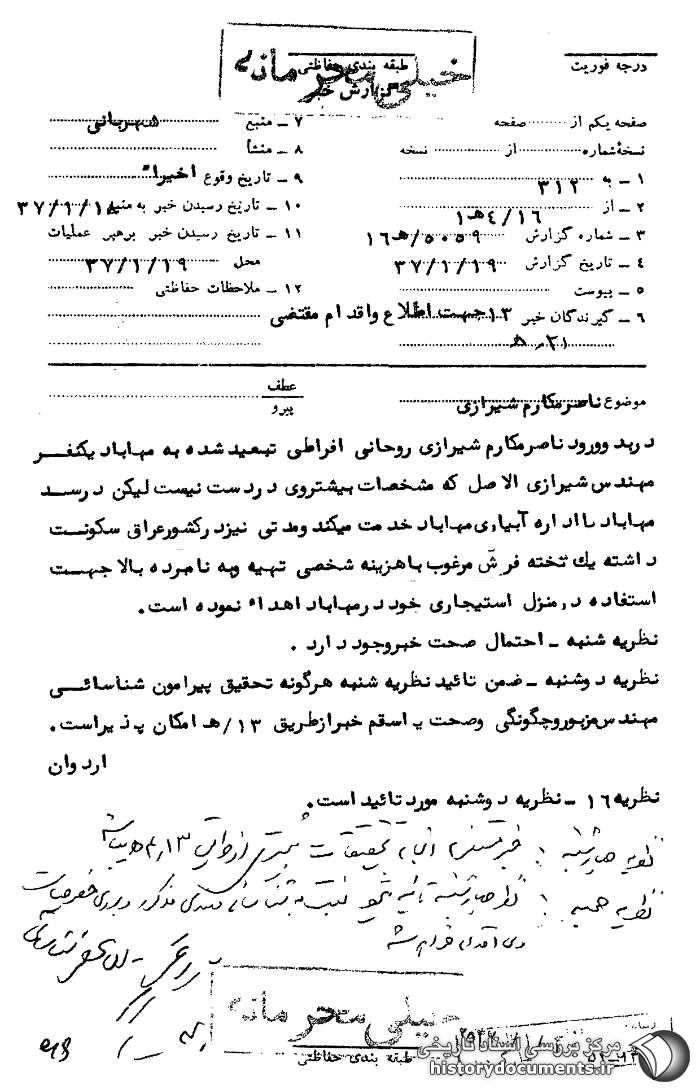 خیلی محرمانه
درجه فوریت
طبقه بندی حفاظتی
گزارش خبر
صفحه یکم از صفحه
نسخهٔ شماره از نسخه
۱ ـ به ۳۱۲
۲ ـ از ۴/۱۶هـ۱
۳ ـ شماره گزارش ۵۰۵۹/هـ۱۶
۴ ـ تاریخ گزارش ۳۷/۱/۱۹
۵ ـ پیوست
۶ ـ گیرندگان خبر ۱۳ جهت اطلاع واقدام مقتضی
۲۱ هـ
۷ ـ منبع شهربانی
۸ ـ منشأ
۹ ـ تاریخ وقوع اخیراً
۱۰ ـ تاریخ رسیدن خبر به منبع ۳۷/۱/۱۸
۱۱ ـ تاریخ رسیدن خبر برهبر عملیات
محل ۳۷/۱/۱۹
۱۲ ـ ملاحظات حفاظتی
موضوع ناصرمکارم شیرازی
عطف
پیرو
در بدو ورود ناصرمکارم شیرازی روحانی افراطی تبعید شده به مهاباد یکنفر
مهندس شیرازی الاصل که مشخصات بیشتروی در دست نیست لیکن در سد
مهاباد بااداره آبیاری مهاباد خدمت میکند ومدتی نیزدرکشورعراق سکونت
داشته یک تخته فرش مرغوب باهزینه شخصی تهیه وبه نامبرده بالا جهت
استفاده در منزل استیجاری خود درمهاباد اهداء نموده است.
نظریه شنبه ـ احتمال صحت خبروجود دارد .
نظریه دوشنبه ـ ضمن تائید نظریه شنبه هرگونه تحقیق پیرامون شناسائی
مهندس مزبوروچگونگی وصحت یاسقم خبرازطریق ۱۳/هـ امکان پذیراست.
اردوان
نظریه ۱۶ ـ نظریه دوشنبه مورد تائید است.
نظریه چهارشنبه :
نظریه جمعه :
خیلی محرمانه
طبقه بندی حفاظتی
مرکز بررسی اسناد تاریخی
historydocuments.ir